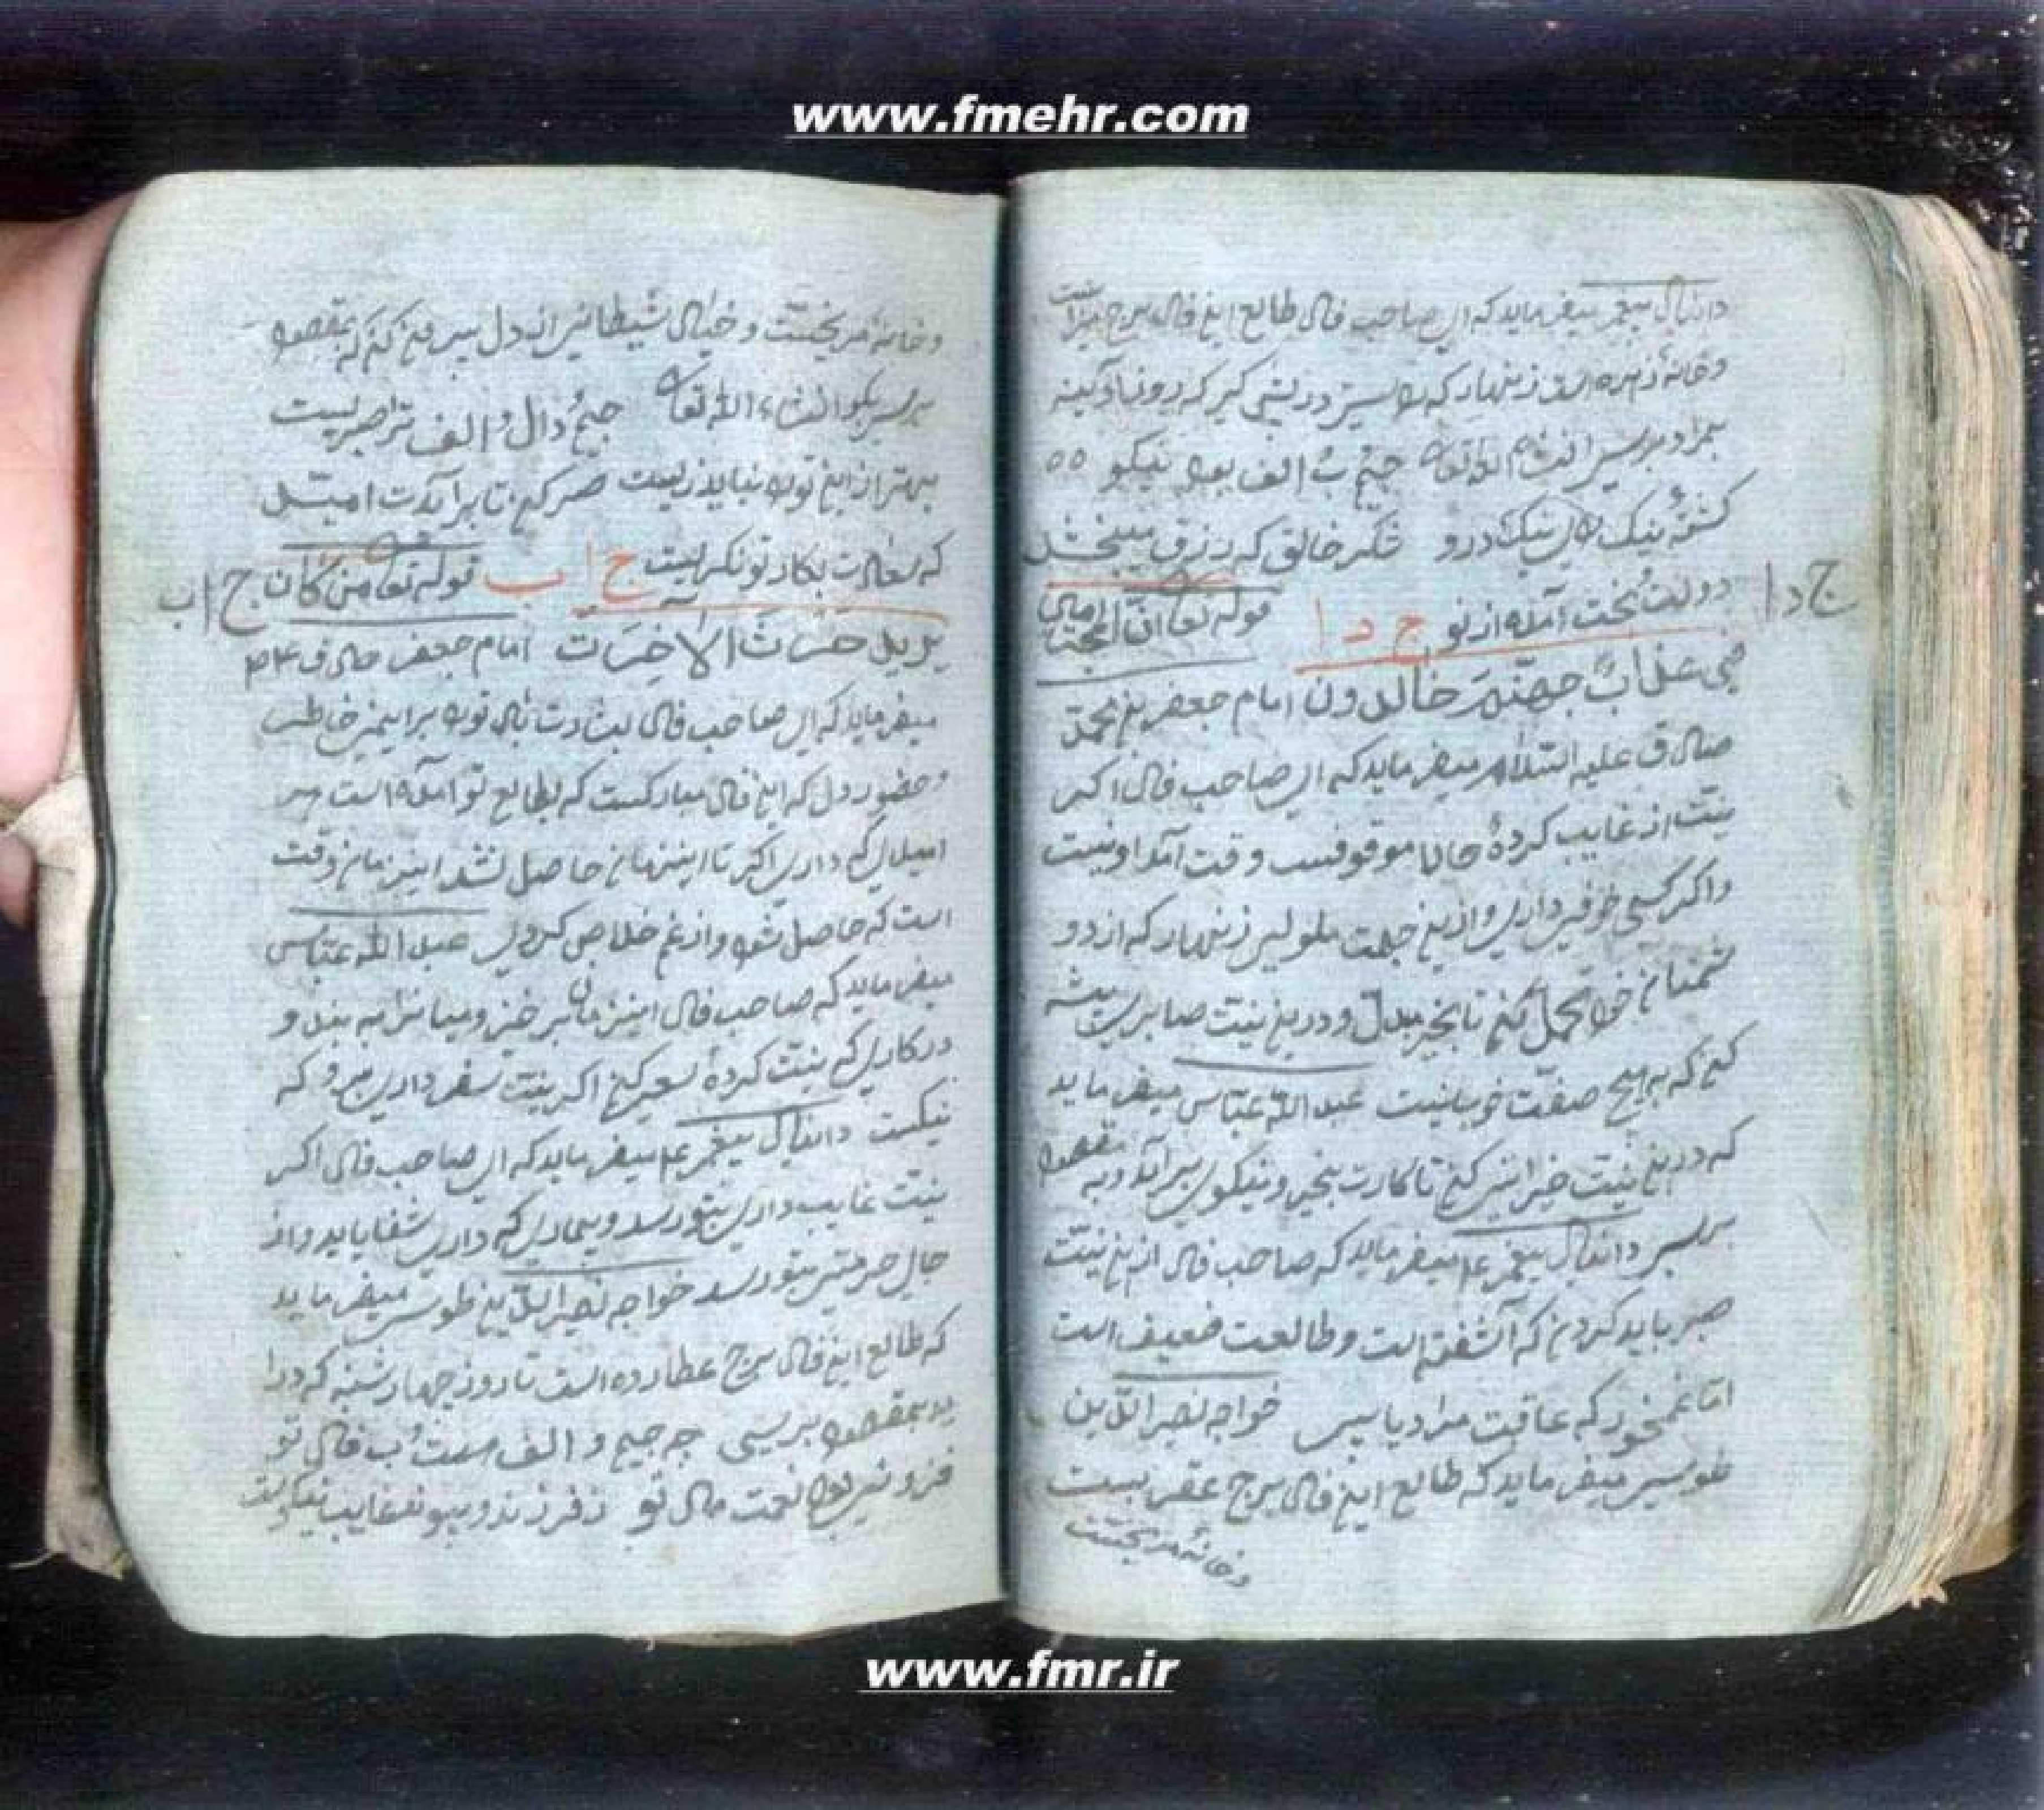 www.fmehr.com
دانیال پیغمبر میفرماید که ای صاحب فال طالع این فال برج میزانست
و خانهٔ زهره است زنهار که
بمراد برسی انشاءالله تعالی جیم ب الف بود نیکو ٥٥
کشتهٔ نیک نیک درو شکر خالق که رزق میبخشد
دولت بخت آمده از تو ج د ا قوله تعالی ان المجرمین
ج د ا
فی عذاب جهنم خالدون امام جعفر بن محمد
صادق علیه السلام میفرماید که ای صاحب فال اگر
نیت از غایب کردهٔ حالا موقوفست وقت آمد او نیست
و اگر کسی داری و ازین جهت ملولی زنهار که از دو
تحمل کن تا بخیر و درین نیت صابری پیشه
کن که به هیچ صفت خوب نیست عبدالله عباس میفرماید
که درین نیت خیراتی کن تا کارت بخیر و نیکوی برآید و به مقصود
برسی دانیال پیغمبر ع میفرماید که صاحب فال ازین نیت
صبر باید کردن که آشفته است و طالعت ضعیف است
اما غم مخور که عاقبت مراد یابی خواجه نصیرالدین
طوسی میفرماید که طالع این فال برج عقربست
و خانهٔ مریخست
و خانه مریخست و خیال شیطانی از دل بیرون کن که بمقصود
برسی انشاءالله تعالی جیم و دال و الف ترا صبریست
بهتر از این تو را نباید زیست صبر کن تا برآیدت امید
که بکار تو نگریست ج ا ب قوله تعالی من کان
ج ا ب
یرید حرث الاخرت امام جعفر صادق
میفرماید که ای صاحب فال بشارت باد تو را بر ایمنی خاطر
و حضور دل که این فال مبارکست که بطالع تو آمده است هر
امیدی که داری اگر تا این زمان حاصل نشد این زمان وقت
است که حاصل شود و از غم خلاص گردی عبدالله عباس
میفرماید که صاحب فال این زمان برخیز و میانرا به بند و
در کاری که نیت کردهٔ سعی کن اگر نیت سفر داری برو که
نیکست دانیال پیغمبر ع میفرماید که ای صاحب فال اگر
نیت غایب داری بتو رسد و بیماری که داری شفا یابد و از
جای حرمتی بتو رسد خواجه نصیرالدین طوسی میفرماید
که طالع این فال برج عطارد است تا روز چهارشنبه که درا
ید بمقصود برسی چه جیم و الف ب فال تو
فزونی بود نعمت مال تو ز فرزند و پیوند غایب
www.fmr.ir